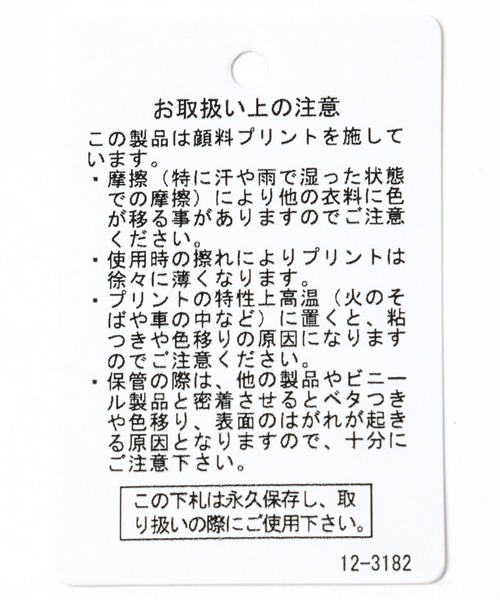 お取扱い上の注意
この製品は顔料プリントを施して
います。
・摩擦（特に汗や雨で湿った状態
での摩擦）により他の衣料に色
が移る事がありますのでご注意
ください。
・使用時の擦れによりプリントは
徐々に薄くなります。
・プリントの特性上高温（火のそ
ばや車の中など）に置くと、粘
つきや色移りの原因になります
のでご注意ください。
・保管の際は、他の製品やビニー
ル製品と密着させるとベタつき
や色移り、表面のはがれが起き
る原因となりますので、十分に
ご注意下さい。
この下札は永久保存し、取
り扱いの際にご使用下さい。
12-3182